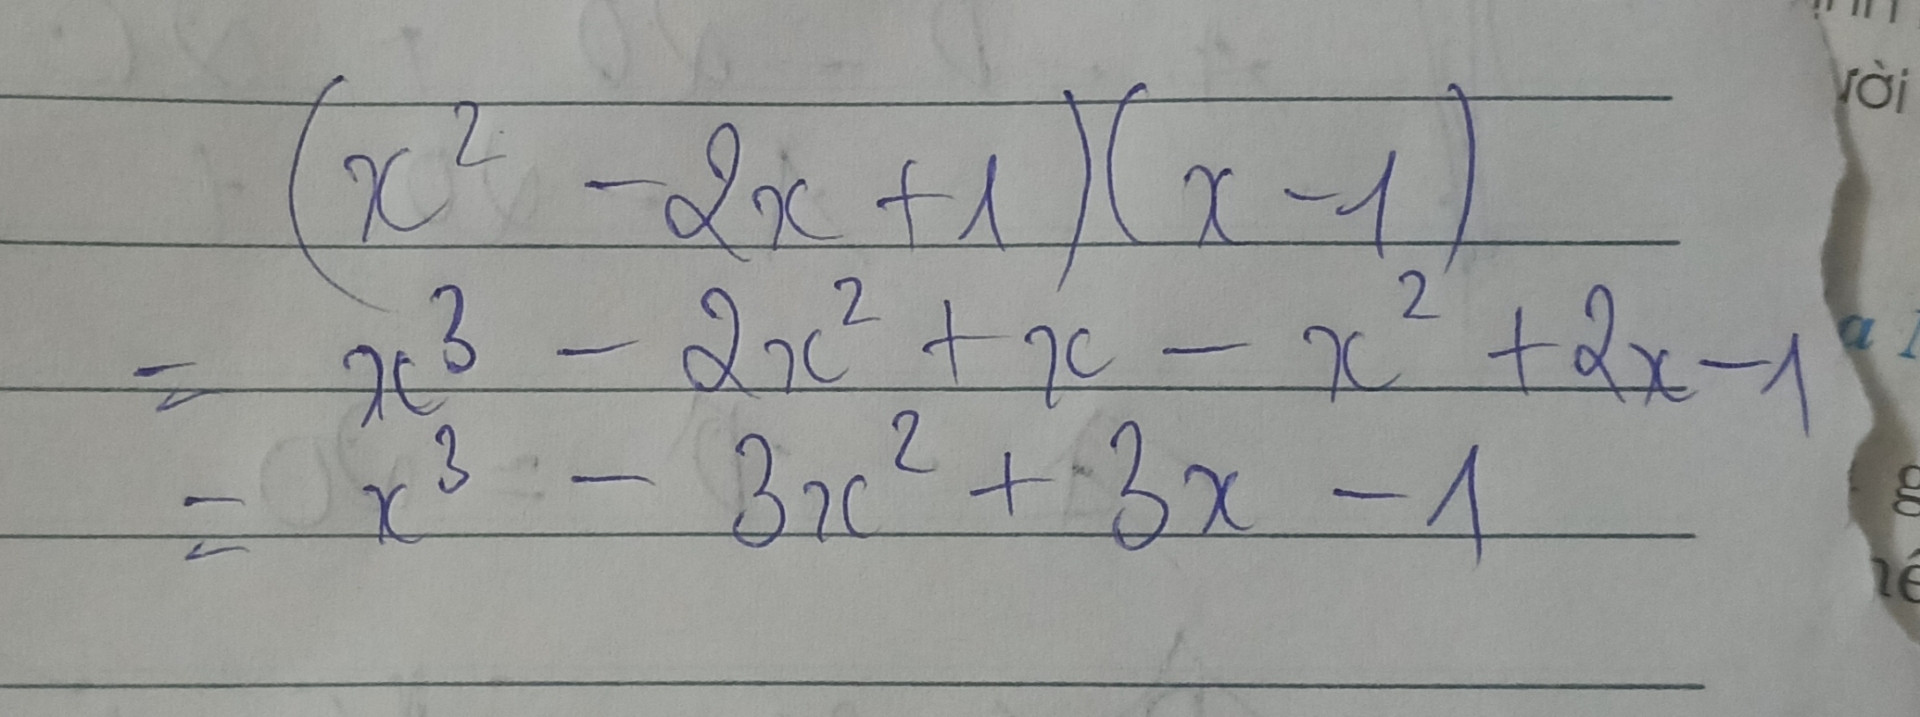 (x² - 2x + 1)(x - 1)
= x³ - 2x² + x - x² + 2x - 1
= x³ - 3x² + 3x - 1